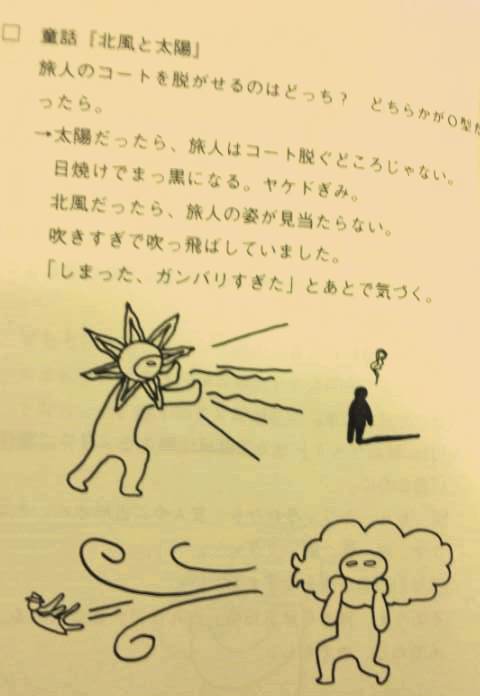 □ 童話「北風と太陽」
旅人のコートを脱がせるのはどっち？　どちらかがO型だ
ったら。
→太陽だったら、旅人はコート脱ぐどころじゃない。
日焼けでまっ黒になる。ヤケドぎみ。
北風だったら、旅人の姿が見当たらない。
吹きすぎで吹っ飛ばしていました。
「しまった、ガンバリすぎた」とあとで気づく。